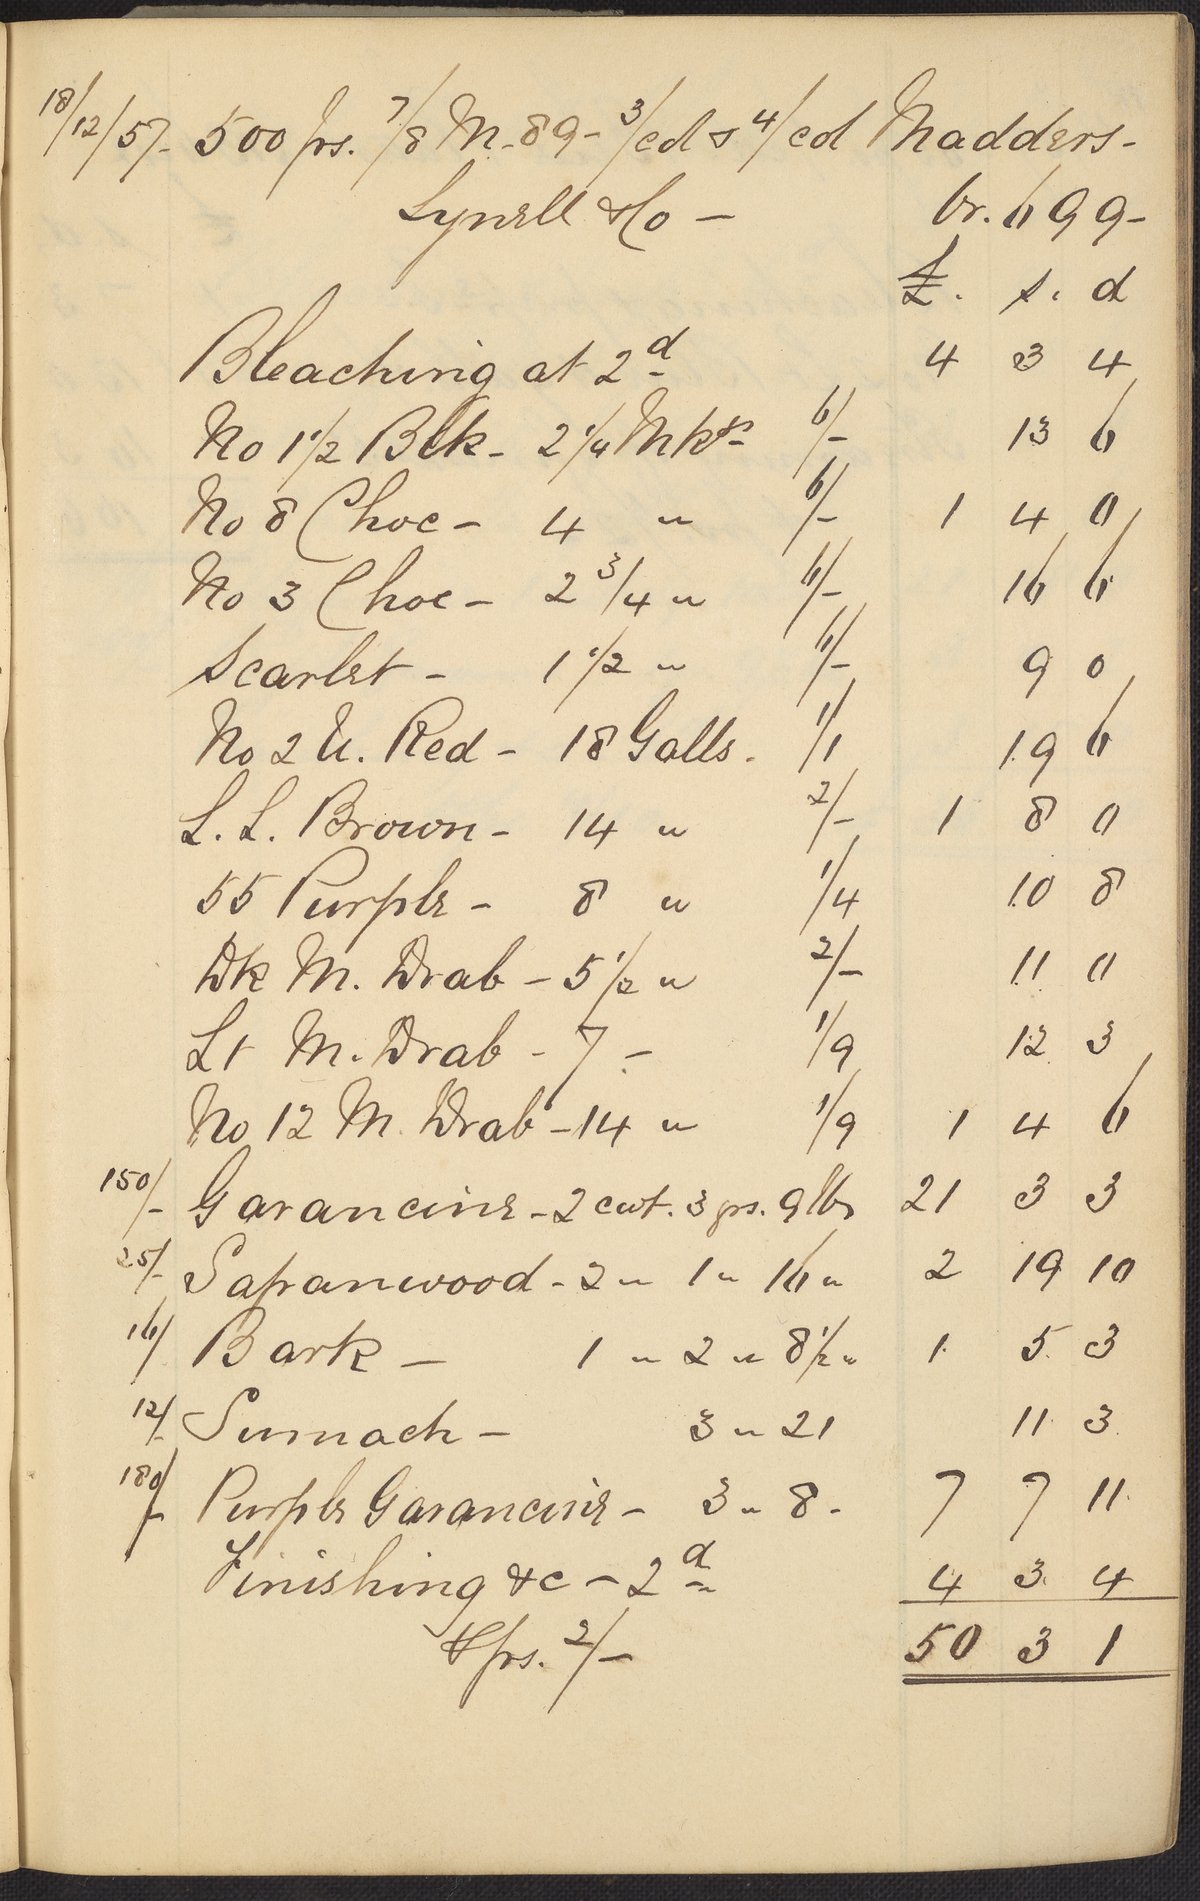 18/12/57. 500 ps. 7/8 M. 89 - 3/cd & 4/cd Madders -
Lynell & Co - br. 699 -
£. s. d
Bleaching at 2d 4 3 4
No 1 1/2 Blk - 2 1/4 Mks 6/- 13 6
No 8 Choc - 4 " 6/- 1 4 0
No 3 Choc - 2 3/4 " 6/- 16 6
Scarlet - 1 1/2 " 6/- 9 0
No 2 U. Red - 18 Galls. 1/1 19 6
L. L. Brown - 14 " 2/- 1 8 0
55 Purple - 8 " 1/4 10 8
Dk M. Drab - 5 1/2 " 2/- 11 0
Lt M. Drab - 7 - 1/9 12 3
No 12 M. Drab - 14 " 1/9 1 4 6
150/- Garancine - 2 cwt. 3 qrs. 9 lbs 21 3 3
25/- Sapanwood - 2 " 1 " 16 " 2 19 10
16/ Bark - 1 " 2 " 8 1/2 " 1 5 3
12/- Sumach - 3 " 21 11 3
180/- Purple Garancine - 3 " 8 - 7 7 11
Finishing &c - 2d 4 3 4
ps. 2/- 50 3 1